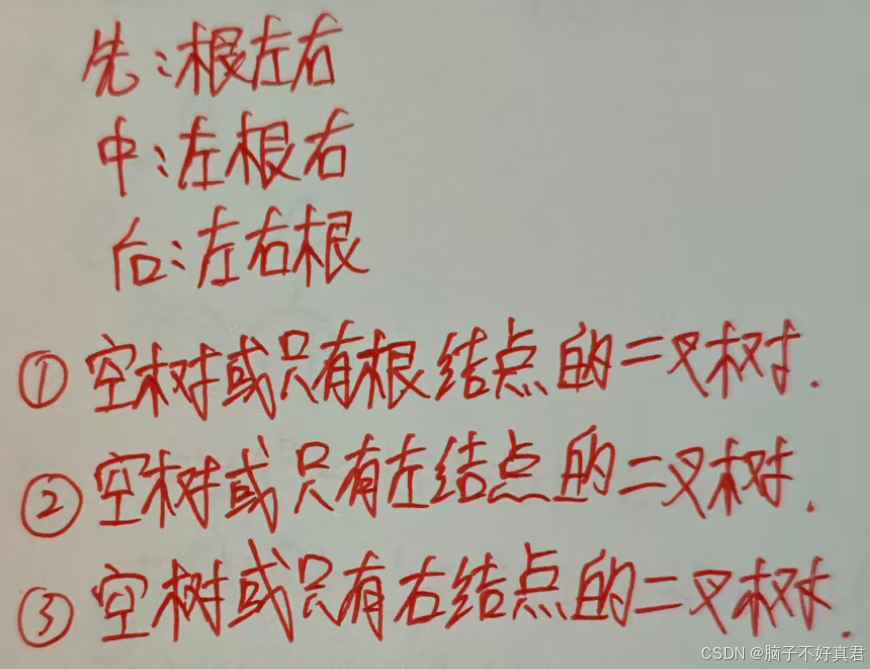 先:根左右
中:左根右
后:左右根
① 空树或只有根结点的二叉树.
② 空树或只有左结点的二叉树.
③ 空树或只有右结点的二叉树.
CSDN @脑子不好真君